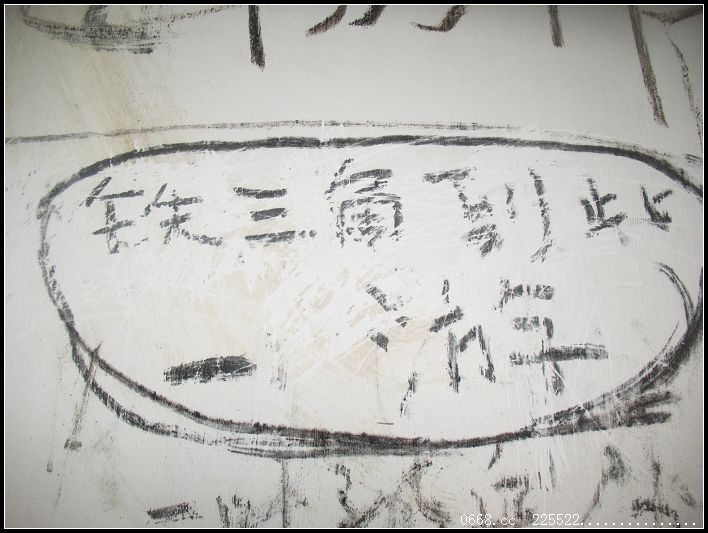 铁三角到此
一游
0668.cc 225522...............